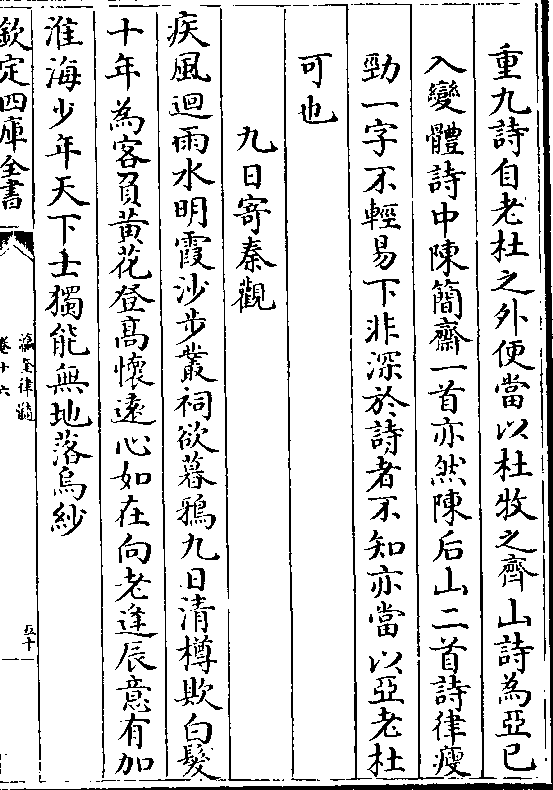 重九詩自老杜之外便當以杜牧之齊山詩為亞已
入變體詩中陳簡齋一首亦然陳后山二首詩律瘦
勁一字不輕易下非深於詩者不知亦當以亞老杜
可也
九日寄秦觀
疾風迴雨水明霞沙步叢祠欲暮鴉九日清樽欺白髮
十年為客負黃花登高懷遠心如在向老逢辰意有加
淮海少年天下士獨能無地落烏紗
欽定四庫全書
瀛奎律髓
卷十六
五十